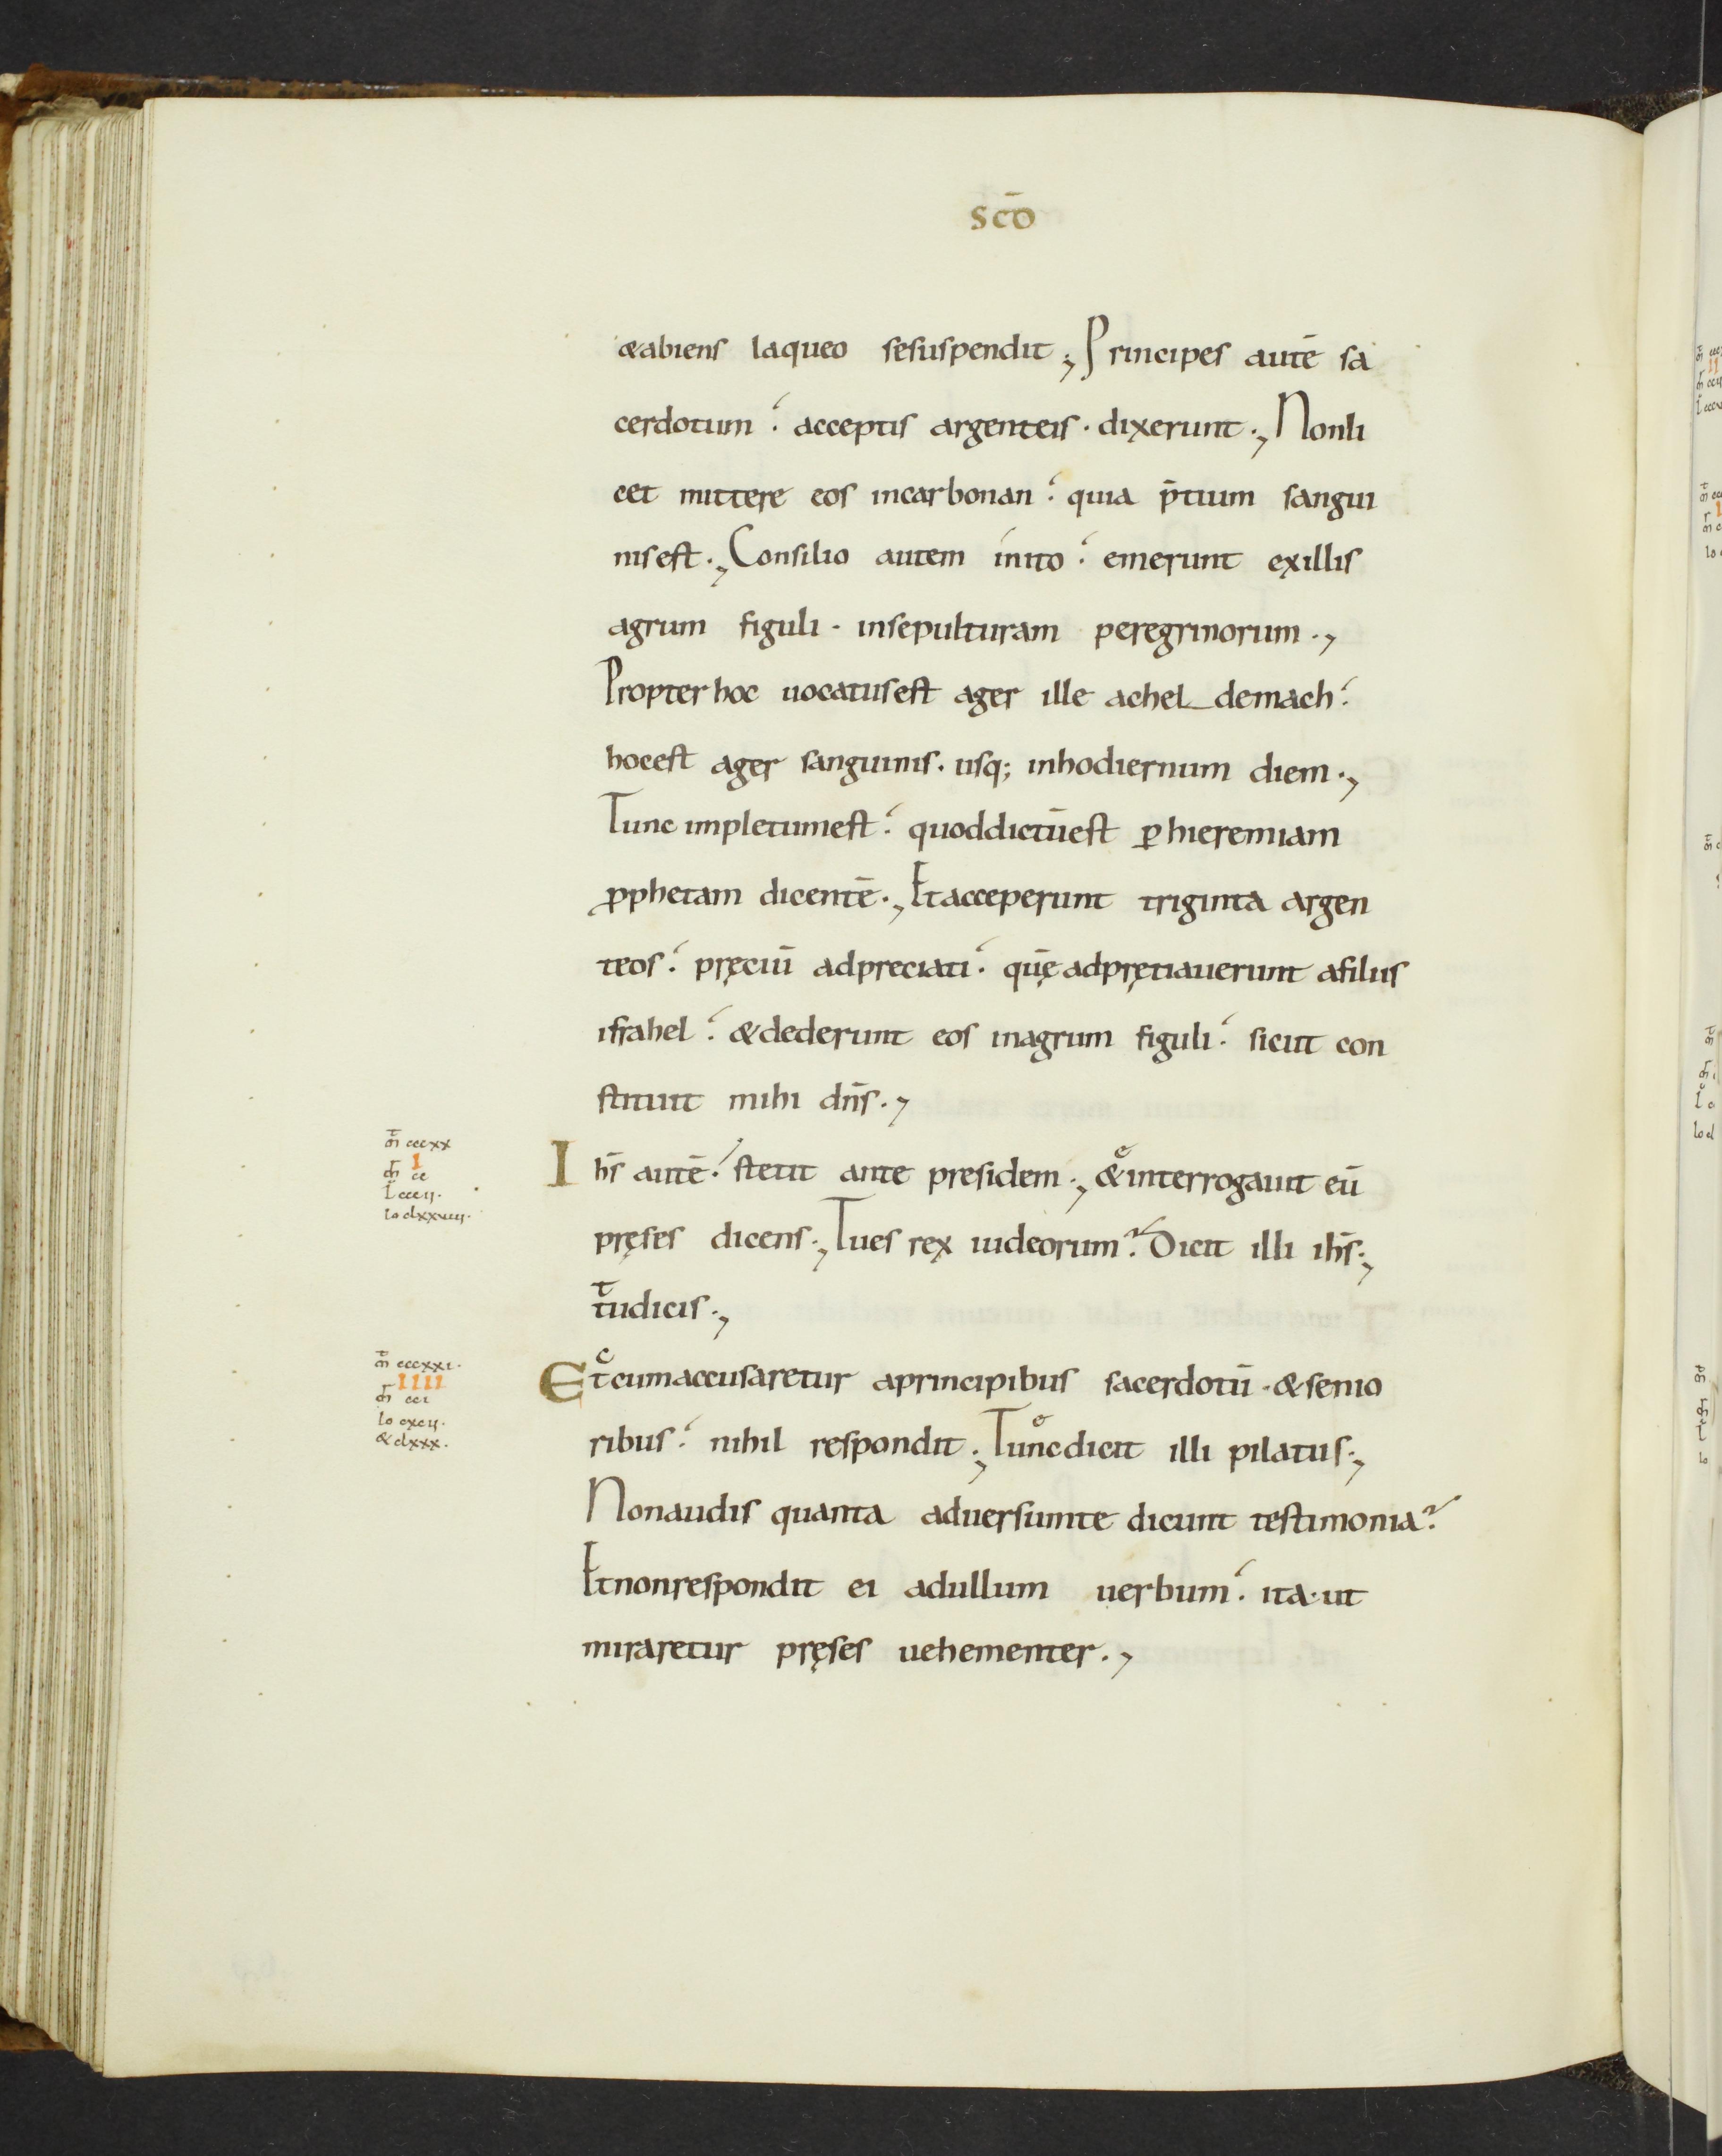 scō
&abiens laqueo sesuspendit ., Principes autē sa
cerdotum : acceptis argenteis · dixerunt ., Nonli
cet mittere eos incarbonan : quia p̄tium sangui
nisest ., Consilio autem inito : emerunt exillis
agrum figuli · insepulturam peregrinorum .,
Propterhoc uocatusest ager ille achel demach :
hocest ager sanguinis · usq; inhodiernum diem .,
Tunc impletumest : quoddictūest ꝑhieremiam
ꝓphetam dicentē ., Etacceperunt triginta argen
teos : pręciū adpreciati : quę̄adprętiauerunt afiliis
israhel : &dederunt eos inagrum figuli : sicut con
stituit mihi dn̄s .,
Ihs̄ autē : stetit ante presidem ., &interrogauit eū
pręses dicens ., Tues rex iudeorum ? Dicit illi ihs̄ .,
tudicis .,
Etcumaccusaretur aprincipibus sacerdotū · &senio
ribus : nihil respondit ., Tuncdicit illi pilatus .,
Nonaudis quanta aduersumte dicunt testimonia ?
Etnonrespondit ei adullum uerbum : ita·ut
miraretur pręses uehementer .,
m̄ cccxx
I
m̄ cc
l̄ cccii·
io clxxuiii·
m̄ cccxxi·
IIII
m̄ cci
io cxcii·
&clxxx·